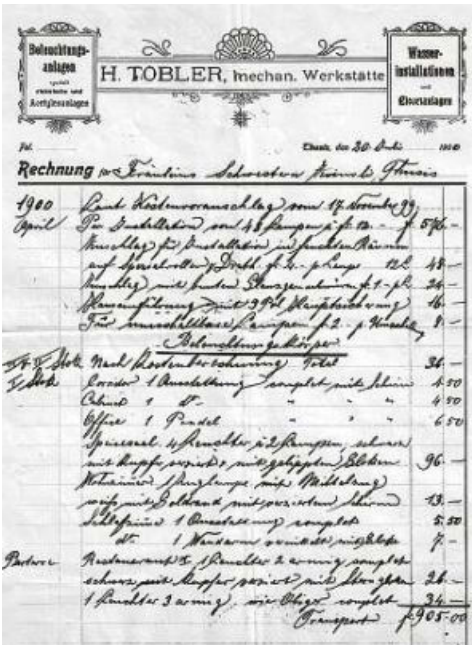 Beleuchtungs-
anlagen
speziell
elektrische und
Acetylenanlagen
H. TOBLER, mechan. Werkstätte
Wasser-
installationen
und
Closetanlagen
Thusis, den 20 Juli 1900
Rechnung für Fräulein Schwestern Thusis
1900 Laut Kostenvoranschlag vom 17. November 99.
April Für Installation von 48 Lampen à fr. 12.- f 576 -
Zuschlag für Installation in feuchten Räumen
auf Spezialrollen 48 -
Zuschlag mit 24 -
Hauseinführung mit Hauptsicherung 16 -
Für umschaltbare Lampen f. 2 - p. 8 -
Beleuchtungskörper
Stock Nach Kostenberechnung Total 34 -
I Stock Coridor 1 Ausstattung complet mit Schirm 4 50
Cabinet 1 dt. " " " 4 50
Office 1 Pendel " " " 6 50
Speisesaal 4 Leuchter à 2 Lampen, schwarz
mit Kupfer verziert, mit 96 -
1 mit
weiss mit Goldrand mit verziertem Schirm 13 -
Schlafzimmer 1 Ausstattung complet 5.50
dt. 1 Wandarm 7 -
Parterre Restaurant 1 Leuchter 2 armig complet
schwarz mit Kupfer verziert mit 26 -
1 Leuchter 3 armig wie Obiger complet 34 -
Transport f 905.00